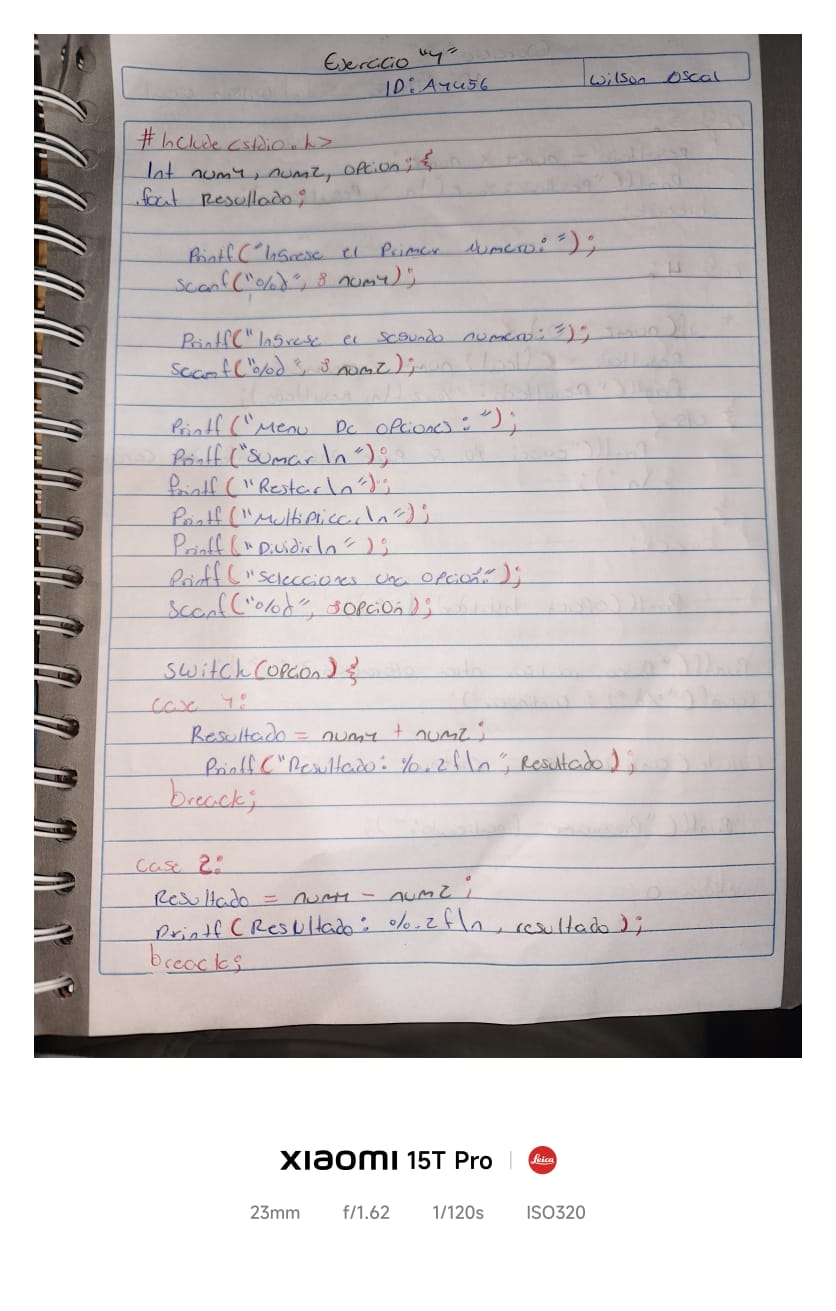 Exercicio "4"
ID: A4456
Wilson Oscal
# Include <stdio.h>
Int num4, num2, opcion; {
.foat Resultado;
Printf("Ingrese el Primer numero: ");
scanf("%d", & num4);
Printf("Ingrese el segundo numero: ");
scanf("%d", & num2);
Printf("Menu De opciones: ");
Printf("Sumar \n");
Printf("Restar \n");
Printf("Multiplicar \n");
Printf("Dividir \n");
Printf("Selecciones una opcion:");
Scanf("%d", &opcion);
switch(opcion) {
case 4:
Resultado = num4 + num2;
Printf("Resultado: %.2f\n", Resultado);
breack;
case 2:
Resultado = num4 - num2;
Printf(Resultado: %.2f\n, resultado);
breack;
XIAOMI 15T Pro | Leica
23mm f/1.62 1/120s ISO320